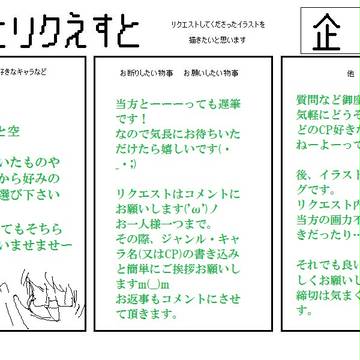 とりくえすと
リクエストしてくださったイラストを
描きたいと思います
企
好きなキャラなど
と空
いたものや
から好みの
選び下さい
てもそちら
いませませー
お断りしたい物事 お願いしたい物事
当方とーーーっても遅筆
です！
なので気長にお待ちいた
だけたら嬉しいです(・
_・;)
リクエストはコメントに
お願いします('ω')ノ
お一人様一つまで。
その際、ジャンル・キャ
ラ名(又はCP)の書き込み
と簡単にご挨拶お願いし
ますm(_)m
お返事もコメントにさせ
て頂きます。
他
質問など御座
気軽にどうそ
どのCP好きか
ねーよーって
後、イラスト
グです。
リクエスト内
当方の画力不
きだったり…
それでも良い
しくお願いし
締切は気まぐ
す。